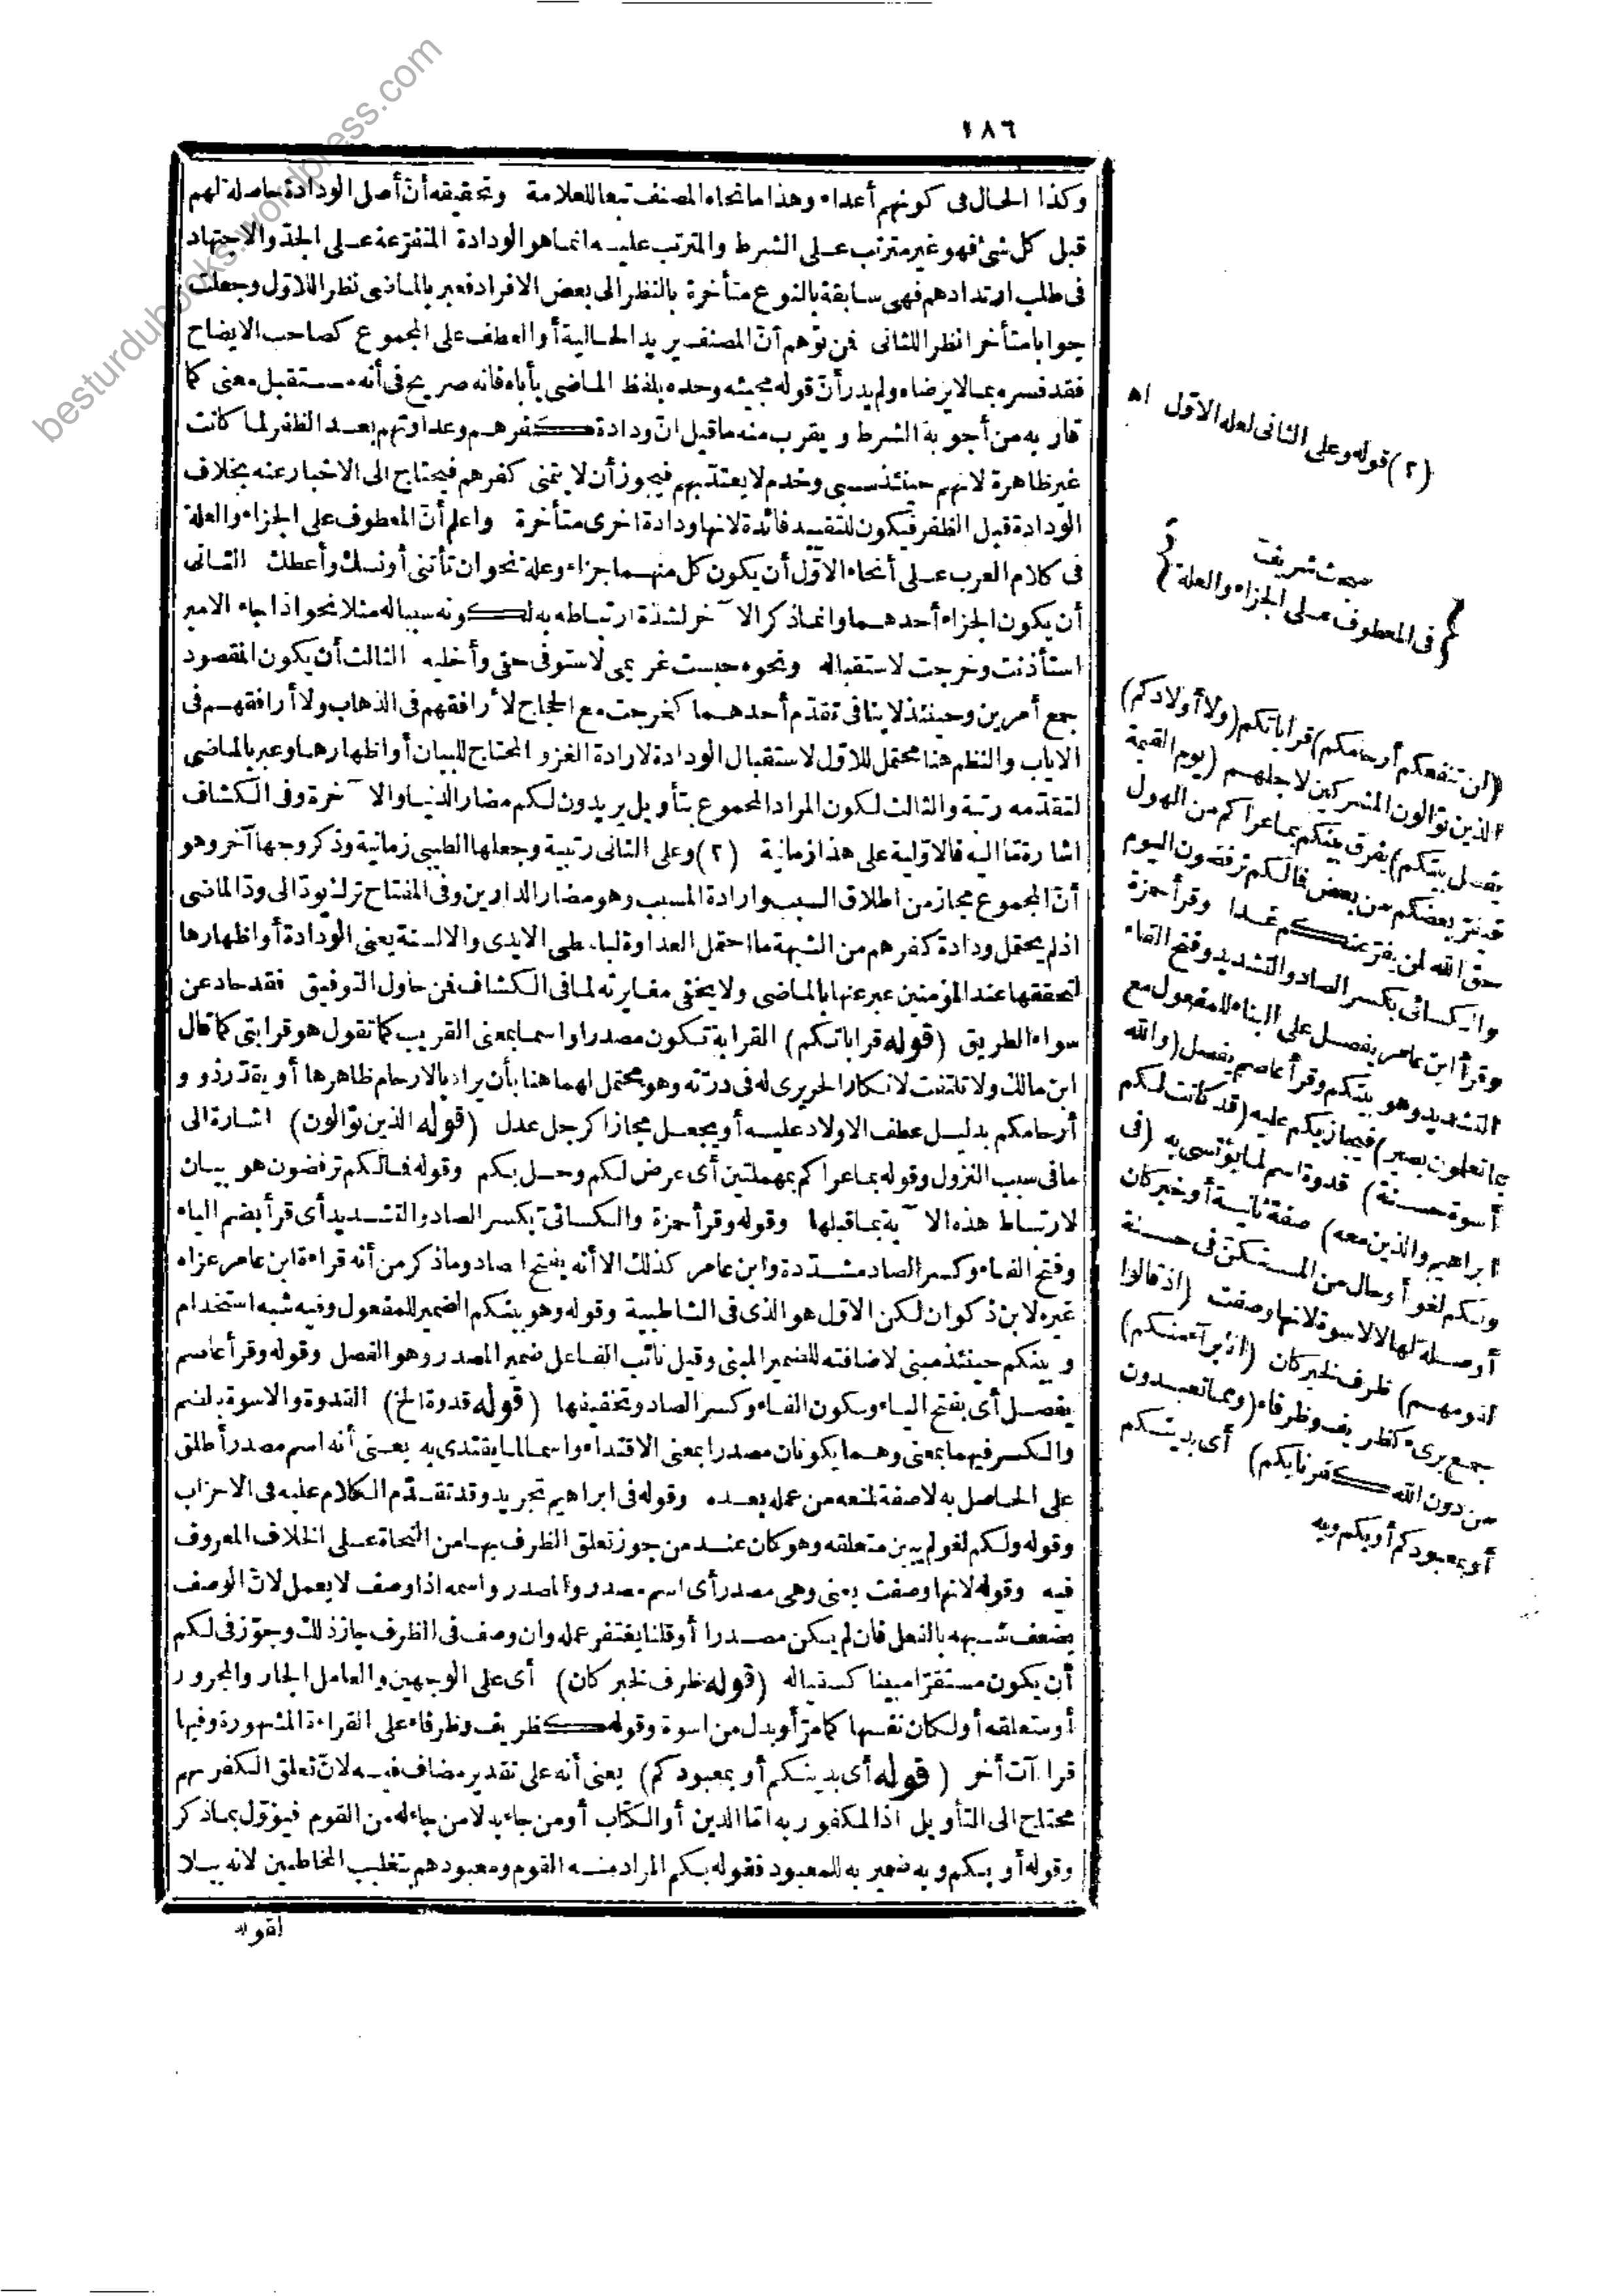 ١٨٦
وكذا الحال فى كونهم أعداء وهذا ما نحاه المصنف تبعا للعلامة وتحقيقه أنّ أصل الودادة حاصلة لهم
قبل كل شئ فهو غير مترتب على الشرط والمترتب عليه انما هو الودادة المتفرّعة على الجدّ والاجتهاد
فى طلب ارتدادهم فهى سابقة بالنوع متأخرة بالنظر الى بعض الافراد فعبر بالماضى نظرا للاوّل وجعلت
جوابا متأخرا نظر اللثانى فمن توهم أنّ المصنف يريد الحالية أو العطف على المجموع كصاحب الايضاح
فقد فسره بما لا يرضاه ولم يدر أنّ قوله مجيئه وحده بلفظ الماضى يأباه فانه صريح فى أنه مستقبل معنى كما
قاربه من أجوبة الشرط ويقرب منه ما قيل انّ ودادة كفرهم وعداوتهم بعد الظفر لما كانت
غير ظاهرة لانهم حينئذ سبى وخدم لا يعتدّ بهم فيجوز أن لا يتمنى كفرهم فيحتاج الى الاخبار عنه بخلاف
الودادة قبل الظفر فيكون للتقييد فائدة لانها ودادة اخرى متأخرة واعلم أنّ المعطوف على الجزاء والعلة
فى كلام العرب على أنحاء الاوّل أن يكون كل منهما جزاء وعلة نحو ان تأتنى أونسك وأعطك الثانى
أن يكون الجزاء أحدهما وانما ذكر الآخر لشدّة ارتباطه به لكونه سببا له مثلا نحو اذا جاء الامير
استأذنت وخرجت لاستقباله ونحوه حبست غريمى لاستوفى حقى وأخليه الثالث أن يكون المقصود
جمع أمرين وحينئذ لا ينافى تقدّم أحدهما كخرجت مع الحجاج لا رافقهم فى الذهاب ولا أرافقهم فى
الاياب والنظم هنا محتمل للاوّل لاستقبال الودادة لارادة الغزو المحتاج للبيان أو اظهارها وعبر بالماضى
لتقدّمه رتبة والثالث لكون المراد المجموع بتأويل يريدون لكم مضار الدنيا والآخرة وفى الكشاف
اشارة ما اليه فالاوّلية على هذا زمانية (٢) وعلى الثانى رتبية وجعلها الطيبى زمانية وذكر وجها آخر وهو
أنّ المجموع مجاز من اطلاق السبب وارادة المسبب وهو مضار الدارين وفى المفتاح ترك نودّ الى ودّ الماضى
اذ لم يحتمل ودادة كفرهم من الشبهة ما احتمل العداوة لباسطى الايدى والالسنة يعنى الودادة أو اظهارها
لتحققها عند المؤمنين عبر عنها بالماضى ولا يخفى مغايرته لما فى الكشاف فمن حاول التوفيق فقد حاد عن
سواء الطريق (قوله قراباتكم) القرابة تكون مصدرا واسما بمعنى القريب كما تقول هو قرابتى كما قال
ابن مالك ولا تلتفت لانكار الحريرى له فى درّته وهو محتمل لهما هنا بأن يراد بالارحام ظاهرها أو يقدّر ذوو
أرحامكم بدليل عطف الاولاد عليه أو يجعل مجازا كرجل عدل (قوله الذين توالون) اشارة الى
ما فى سبب النزول وقوله بما عراكم بمهملتين أى عرض لكم وحل بكم وقوله فمالكم ترفضون هو بيان
لارتباط هذه الآية بما قبلها وقوله وقرأ حمزة والكسائىّ بكسر الصاد والتشديد أى قرأ بضم الياء
وفتح الفاء وكسر الصاد مشدّدة وابن عامر كذلك الا أنه يفتح الصاد وما ذكر من أنه قراءة ابن عامر عزاه
غيره لابن ذكوان لكن الاوّل هو الذى فى الشاطبية وقوله وهو بينكم الضمير للمفعول وفيه شبه استخدام
وبينكم حينئذ مبنى لاضافته للضمير المبنى وقيل نائب الفاعل ضمير المصدر وهو الفصل وقوله وقرأ عاصم
يفصل أى بفتح الياء وسكون الفاء وكسر الصاد وتخفيفها (قوله قدوة الخ) القدوة والاسوة بالضم
والكسر فيهما بمعنى وهما يكونان مصدرا بمعنى الاقتداء واسما لما يقتدى به بعنى أنه اسم مصدر أطلق
على الحاصل به لا صفة لمنعه من عمله بعده وقوله فى ابراهيم تجريد وقد تقدّم الكلام عليه فى الاحزاب
وقوله ولكم لغو لم يبين متعلقه وهو كان عند من جوز تعلق الظرف بها من النحاة على الخلاف المعروف
فيه وقوله لانها وصفت يعنى وهى مصدر أى اسم مصدر والمصدر واسمه اذا وصف لا يعمل لانّ الوصف
يضعف شبهه بالفعل فان لم يكن مصدرا أو قلنا يغتفر عمله وان وصف فى الظرف جاز ذلك وجوّز فى لكم
أن يكون مستقرّا مبينا كسقياله (قوله ظرف لخبر كان) أى على الوجهين والعامل الجار والمجرور
أو متعلقه أو لكان نفسها كما مرّ أو بدل من اسوة وقوله كظريف وظرفاء على القراءة المشهورة وفيها
قراآت أخر (قوله أى بدينكم أو بمعبودكم) يعنى أنه على تقدير مضاف فيه لانّ تعلق الكفر بهم
محتاج الى التأويل اذ المكفور به امّا الدين أو الكتاب أو من جاء به لا من جاء له من القوم فيؤوّل بما ذكر
وقوله أو بكم وبه ضمير به للمعبود فقوله بكم المراد منه القوم ومعبودهم بتغليب المخاطبين لانه بلا
لقوله
(٢) قوله وعلى الثانى لعله الاوّل اه
مبحث شريف
{فى المعطوف على الجزاء والعلة}
(لن تنفعكم أرحامكم) قراباتكم (ولا أولادكم)
الذين توالون المشركين لاجلهم (يوم القيمة
يفصل بينكم) يفرق بينكم بما عراكم من الهول
فيفرّ بعضكم من بعض فمالكم ترفضون اليوم
حق الله لمن يفرّ عنكم غدا وقرأ حمزة
والكسائى بكسر الصاد والتشديد وفتح الفاء
وقرأ ابن عامر يفصل على البناء للمفعول مع
التشديد وهو بينكم وقرأ عاصم يفصل (والله
بما تعملون بصير) فيجازيكم عليه (قد كانت لكم
أسوة حسنة) قدوة اسم لما يؤتسى به (فى
ابراهيم والذين معه) صفة ثانية أو خبر كان
ولكم لغو أو حال من المستكنّ فى حسنة
أو صلة لها لا لاسوة لانها وصفت (اذ قالوا
لقومهم) ظرف لخبر كان (انا برآء منكم)
جمع برىء كظريف وظرفاء (ومما تعبدون
من دون الله كفرنا بكم) أى بدينكم
أو بمعبودكم أو بكم وبه
besturdubooks.wordpress.com